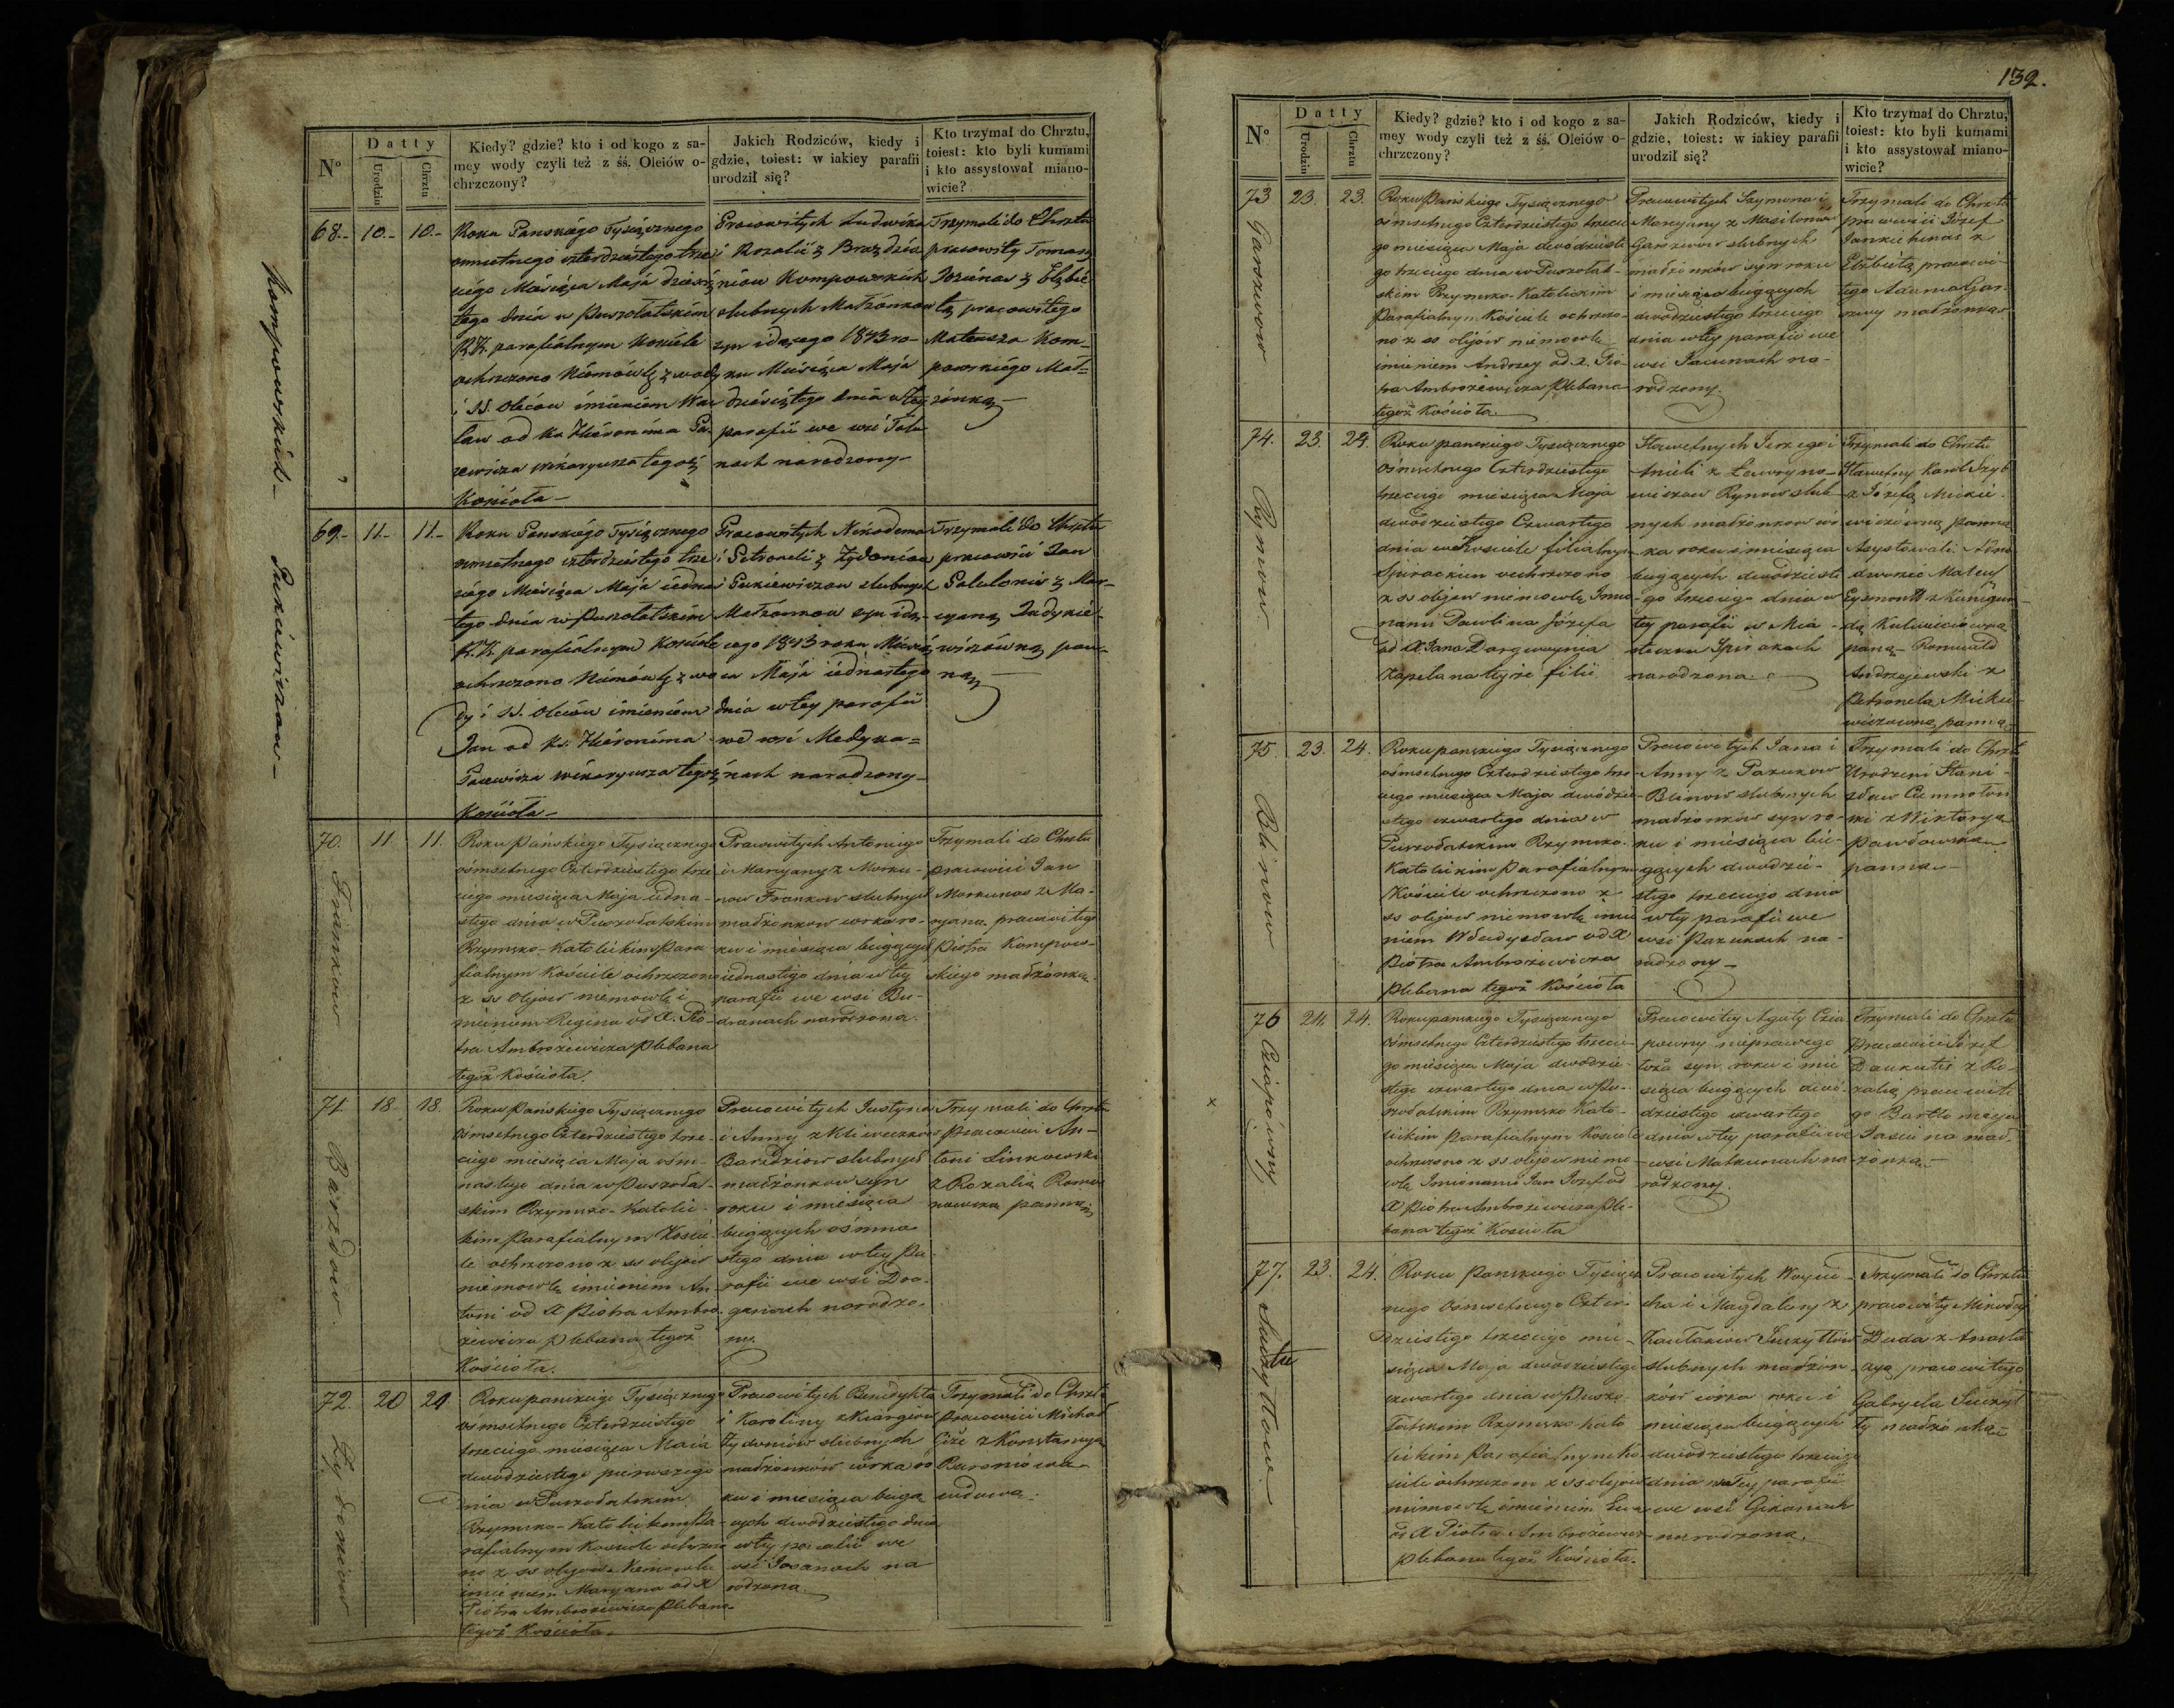 132.
N°
Datty
Urodzin
Chrztu
Kiedy? gdzie? kto i od kogo z sa-
mey wody czyli też z śś. Oleiów o-
chrzczony?
Jakich Rodziców, kiedy i
gdzie, toiest: w iakiey parafii
urodził się?
Kto trzymał do Chrztu,
toiest: kto byli kumami
i kto assystował miano-
wicie?
68.- 10.- 10.-
Roku Panskiégo Tysiącznego
osmsetnego czterdziestego trze
ciégo Miésiąca Maja dziesią
tego dnia w Puszołatskim
R.K. parafiálnym Kosciéle
ochrzczono Niémowlę z wody
i SS. Oleiów imieniem Wac
ław od Ks. Hiéronima Pa-
cewicza wikaryusza tegoż
Kościoła -
Pracowitych Ludwika
i Rozalii z
Kompowskich
slubnych Małżonkow
syn idącego 1843 ro-
ku Miésiąca Maja
dziésiątego dnia w tey
parafii we wsi
nach narodzony -
Trzymali do Chrztu
pracowity Tomasz
z Elżbie
tą pracowitego
Mateusza Kom-
powskiégo Mał=
żónką -
69.- 11.- 11.-
Pukiéwiczow -
Roku Panskiégo Tysiącznego
osmsetnego czterdziestego trze
ciégo Miésiąca Maja iédna
tego dnia w Puszołatskim
R.K. parafiálnym Kosciéle
ochrzczono Niémowlę z wo
dy i SS. Oleiów imieniém
Jan od Ks. Hiéronima
Pacewicza wikaryusza tegoż
Kościoła -
Pracowitych Nikodema
i Petroneli z Zydoniow
Pukiewiczow slubnych
Małżonkow syn idą-
cego 1843 roku Miésią
ca Maja iédnastego
dnia w tey parafii
we wsi Medyka=
niach narodzony -
Trzymáli do Chrztu
pracowici Jan
z Mar-
cyaną
wiczówną pan-
ną -
70. 11 11.
Frankow
Roku Pańskiego Tysiącznego
ośmsetnego Czterdziestego trze
ciego miesiąca Maja iedna-
stego dnia w Puszołatskim
Rzymsko-Katolickim Para
fialnym Kościele ochrzczono
z ss olejow niemowlę i
mieniem Regina od X. Pio-
tra Ambrożewicza Plebana
tegoż Kościoła.
Pracowitych Antoniego
i Maryany z Morku-
now Frankow slubnych
małżonkow corka ro-
ku i miesiąca bieżących
iednastego dnia w tey
parafii we wsi Bu-
dranach narodzona.
Trzymali do Chrztu
pracowici Jan
Morkunas z Ma-
ryana pracowitego
Piotra Kompow-
skiego małżónką.
71. 18. 18.
Barzdow
Roku Pańskiego Tysiącznego
Ośmsetnego Czterdziestego trze-
ciego miesiąca Maja ośm-
nastego dnia w Puszoła-
skim Rzymsko-Katolic-
kim Parafialnym Koście
le ochrzczono z ss olejow
niemowlę imieniem An-
toni od X Piotra Ambro-
żewicza Plebana tegoż
Kościoła.
Pracowitych Justyna
i Anny z Kliewczków
Barzdziow slubnych
małżonkow syn
roku i miesiąca
bieżących ośmna-
stego dnia w tey Pa-
rafii we wsi Dro-
ganiach narodzo-
ny.
Trzymali do Chrztu
Pracowici An-
toni Linkowski
z Rozalią Roma
nowską panną
72. 20 21.
Zydoniow
Roku panskiego Tysiącznego
ośmsetnego Czterdziestego
trzeciego miesiąca Maia
dwodziestego pierwszego
dnia w Puszołatskim
Rzymsko-Katolickim Pa-
rafialnym Kościele ochrzczo
no z ss olejow Niemowle
imieniem Maryana od X
Piotra Ambrożewicza Plebana
tegoż Kościoła.
Pracowitych Benedykta
i Karoliny
Zydoniów slubnych
małżonków córka ro
ku i miesiąca bieżą
cych dwódziestego dnia
w tey parafii we
wsi Josanach na
rodzona.
Trzymali do Chrztu
Pracowici Michał
z Konstancya
wdową.
73 23. 23.
Garszwow
Roku Pańskiego Tysiącznego
ośmsetnego Czterdziestego trzecie
go miesiąca Maja dwodzieste
go trzeciego dnia w Puszołat-
skim Rzymsko-Katolickim
Parafialnym Kościele ochrzczo-
no z ss olijów niemowle
imieniem Andrzey od X. Pio-
tra Ambrożewicza Plebana
tegoż Kościoła.
Pracowitych Szymona i
Marcyany z
Garszwow slubnych
małżonków syn roku
i miesiąca bieżących
dwodziestego trzeciego
dnia w tey parafii we
wsi Jacunach na-
rodzony.
Trzymali do Chrztu
pracowici Józef
Jankiehinas z
Elżbietą pracowi-
tego Adama Gar-
szwy małżonką
74. 23. 24.
Rynow
Roku panskiego Tysiącznego
Ośmsetnego Czterdziestego
trzeciego miesiąca Maja
dwodziestego Czwartego
dnia w Kosciele filialnym
Spirackim ochrzczono
z ss olejow niemowlę Imio
nami Pawlina Józefa
od X. Jana Dargwaynia
Kapelana tejże filii
Sławetnych Jerzego i
Anieli z Ławryno-
wiczow Rynow slub-
nych małżonkow cór
ka roku i miesiąca
bieżących dwodzieste
go trzeciego dnia w
tey parafii w Mia-
steczku Spirakach
narodzona.
Trzymali do Chrztu
Sławetny Karol Szyb
z Józefą Mickie-
wiczówną panną
Asystowali:
Mateusz
Eysmontt z Kunegun
dą
paną - Romuald
Andrzejewski z
Petronelą Micku
wiczowną panną
75. 23. 24.
Blinow
Roku panskiego Tysiącznego
ośmsetnego Czterdziestego trze
ciego miesiąca Maja dwódzie-
stego czwartego dnia w
Puszołatskim Rzymsko-
Katolickim Parafialnym
Kościele ochrzczono z
ss olejow niemowlę imie
niem Władysław od X
Piotra Ambrożewicza
Plebana tegoż Kościoła
Pracowitych Jana i
Anny z Pazukow
Blinow slubnych
małżonków syn ro-
ku i miesiąca bie-
żących dwodzie-
stego trzeciego dnia
w tey parafii we
wsi Pazukach na-
rodzony -
Trzymali do Chrztu
Urodzeni Stani-
sław Ciemnołon
ski z Wiktorya
Pawłowską
panną -
76 24. 24.
Roku panskiego Tysiącznego
Ośmsetnego Czterdziestego trzecie-
go miesiąca Maja dwodzie-
stego czwartego dnia w Pu-
szołatskim Rzymsko Kato-
lickim Parafialnym Kosciele
ochrzczono z ss olejow niemo-
wlę Imionami Jan Jozef od
X Piotra Ambrożewicza Ple-
bana tegoż Kosciola
Pracowitey Agaty Czia
powny nieprawego
łoża syn, roku i mie
siąca bieżących dwó-
dziestego czwartego
dnia w tey parafii we
wsi Matkunach na-
rodzony.
Trzymali do Chrztu
Pracowici Józef
Daukutis z Ro-
zalią pracowite
go Bartłomieja
mał-
żonką -
77. 23. 24.
Roku Panskiego Tysiącz
nego Ośmsetnego Czter-
dziestego trzeciego mie-
siąca Maja dwodziestego
czwartego dnia w Puszo-
łatskim Rzymsko Kato
lickim Parafialnym Ko-
ściele ochrzczono z ss olejow
niemowlę imieniem Ewa
od X Piotra Ambrożewicza
Plebana tegoż Kościoła.
Pracowitych Woycie-
cha i Magdaleny z
slubnych małżon-
ków córka roku i
miesiąca bieżących
dwodziestego trzeciego
dnia w Tey parafii
we wsi
narodzona.
Trzymali do Chrztu
pracowity Mikołaj
Duda z Anasta
zyą pracowitego
Gabryela Suczył
ły małżonką -